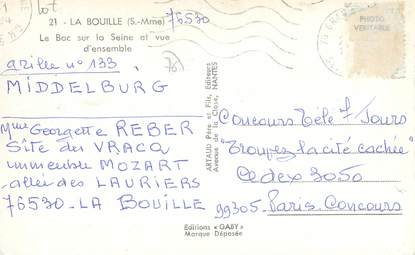 lot
21 - LA BOUILLE (S.-Mme) 76530
Le Bac sur la Seine et vue
d'ensemble
grille n° 133
MIDDELBURG
Mme Georgette REBER
Site des VRACQ
immeuble MOZART
allée des LAURIERS
76530 - LA BOUILLE
76
ARTAUD Père et Fils, Editeurs
Avenue de la Close, NANTES
PHOTO
VERITABLE
Concours Télé 7 Jours
"Trouvez la cité cachée"
Cedex 3050
99305 - Paris Concours
Editions « GABY »
Marque Déposée